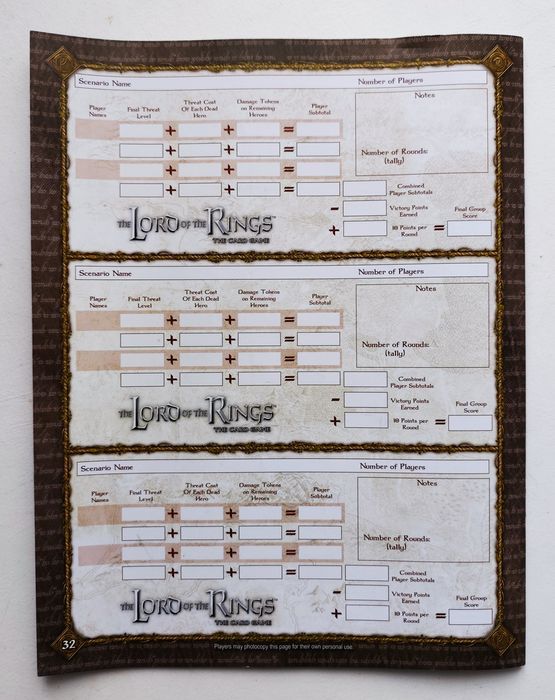 Scenario Name Number of Players
Player Names Final Threat Level Threat Cost Of Each Dead Hero Damage Tokens on Remaining Heroes Player Subtotal Notes
+ + =
+ + =
+ + = Number of Rounds: (tally)
+ + = Combined Player Subtotals
- Victory Points Earned Final Group Score
THE LORD OF THE RINGS + 10 Points per Round =
THE CARD GAME
Scenario Name Number of Players
Player Names Final Threat Level Threat Cost Of Each Dead Hero Damage Tokens on Remaining Heroes Player Subtotal Notes
+ + =
+ + =
+ + = Number of Rounds: (tally)
+ + = Combined Player Subtotals
- Victory Points Earned Final Group Score
THE LORD OF THE RINGS + 10 Points per Round =
THE CARD GAME
Scenario Name Number of Players
Player Names Final Threat Level Threat Cost Of Each Dead Hero Damage Tokens on Remaining Heroes Player Subtotal Notes
+ + =
+ + =
+ + = Number of Rounds: (tally)
+ + = Combined Player Subtotals
- Victory Points Earned Final Group Score
THE LORD OF THE RINGS + 10 Points per Round =
THE CARD GAME
32 Players may photocopy this page for their own personal use.